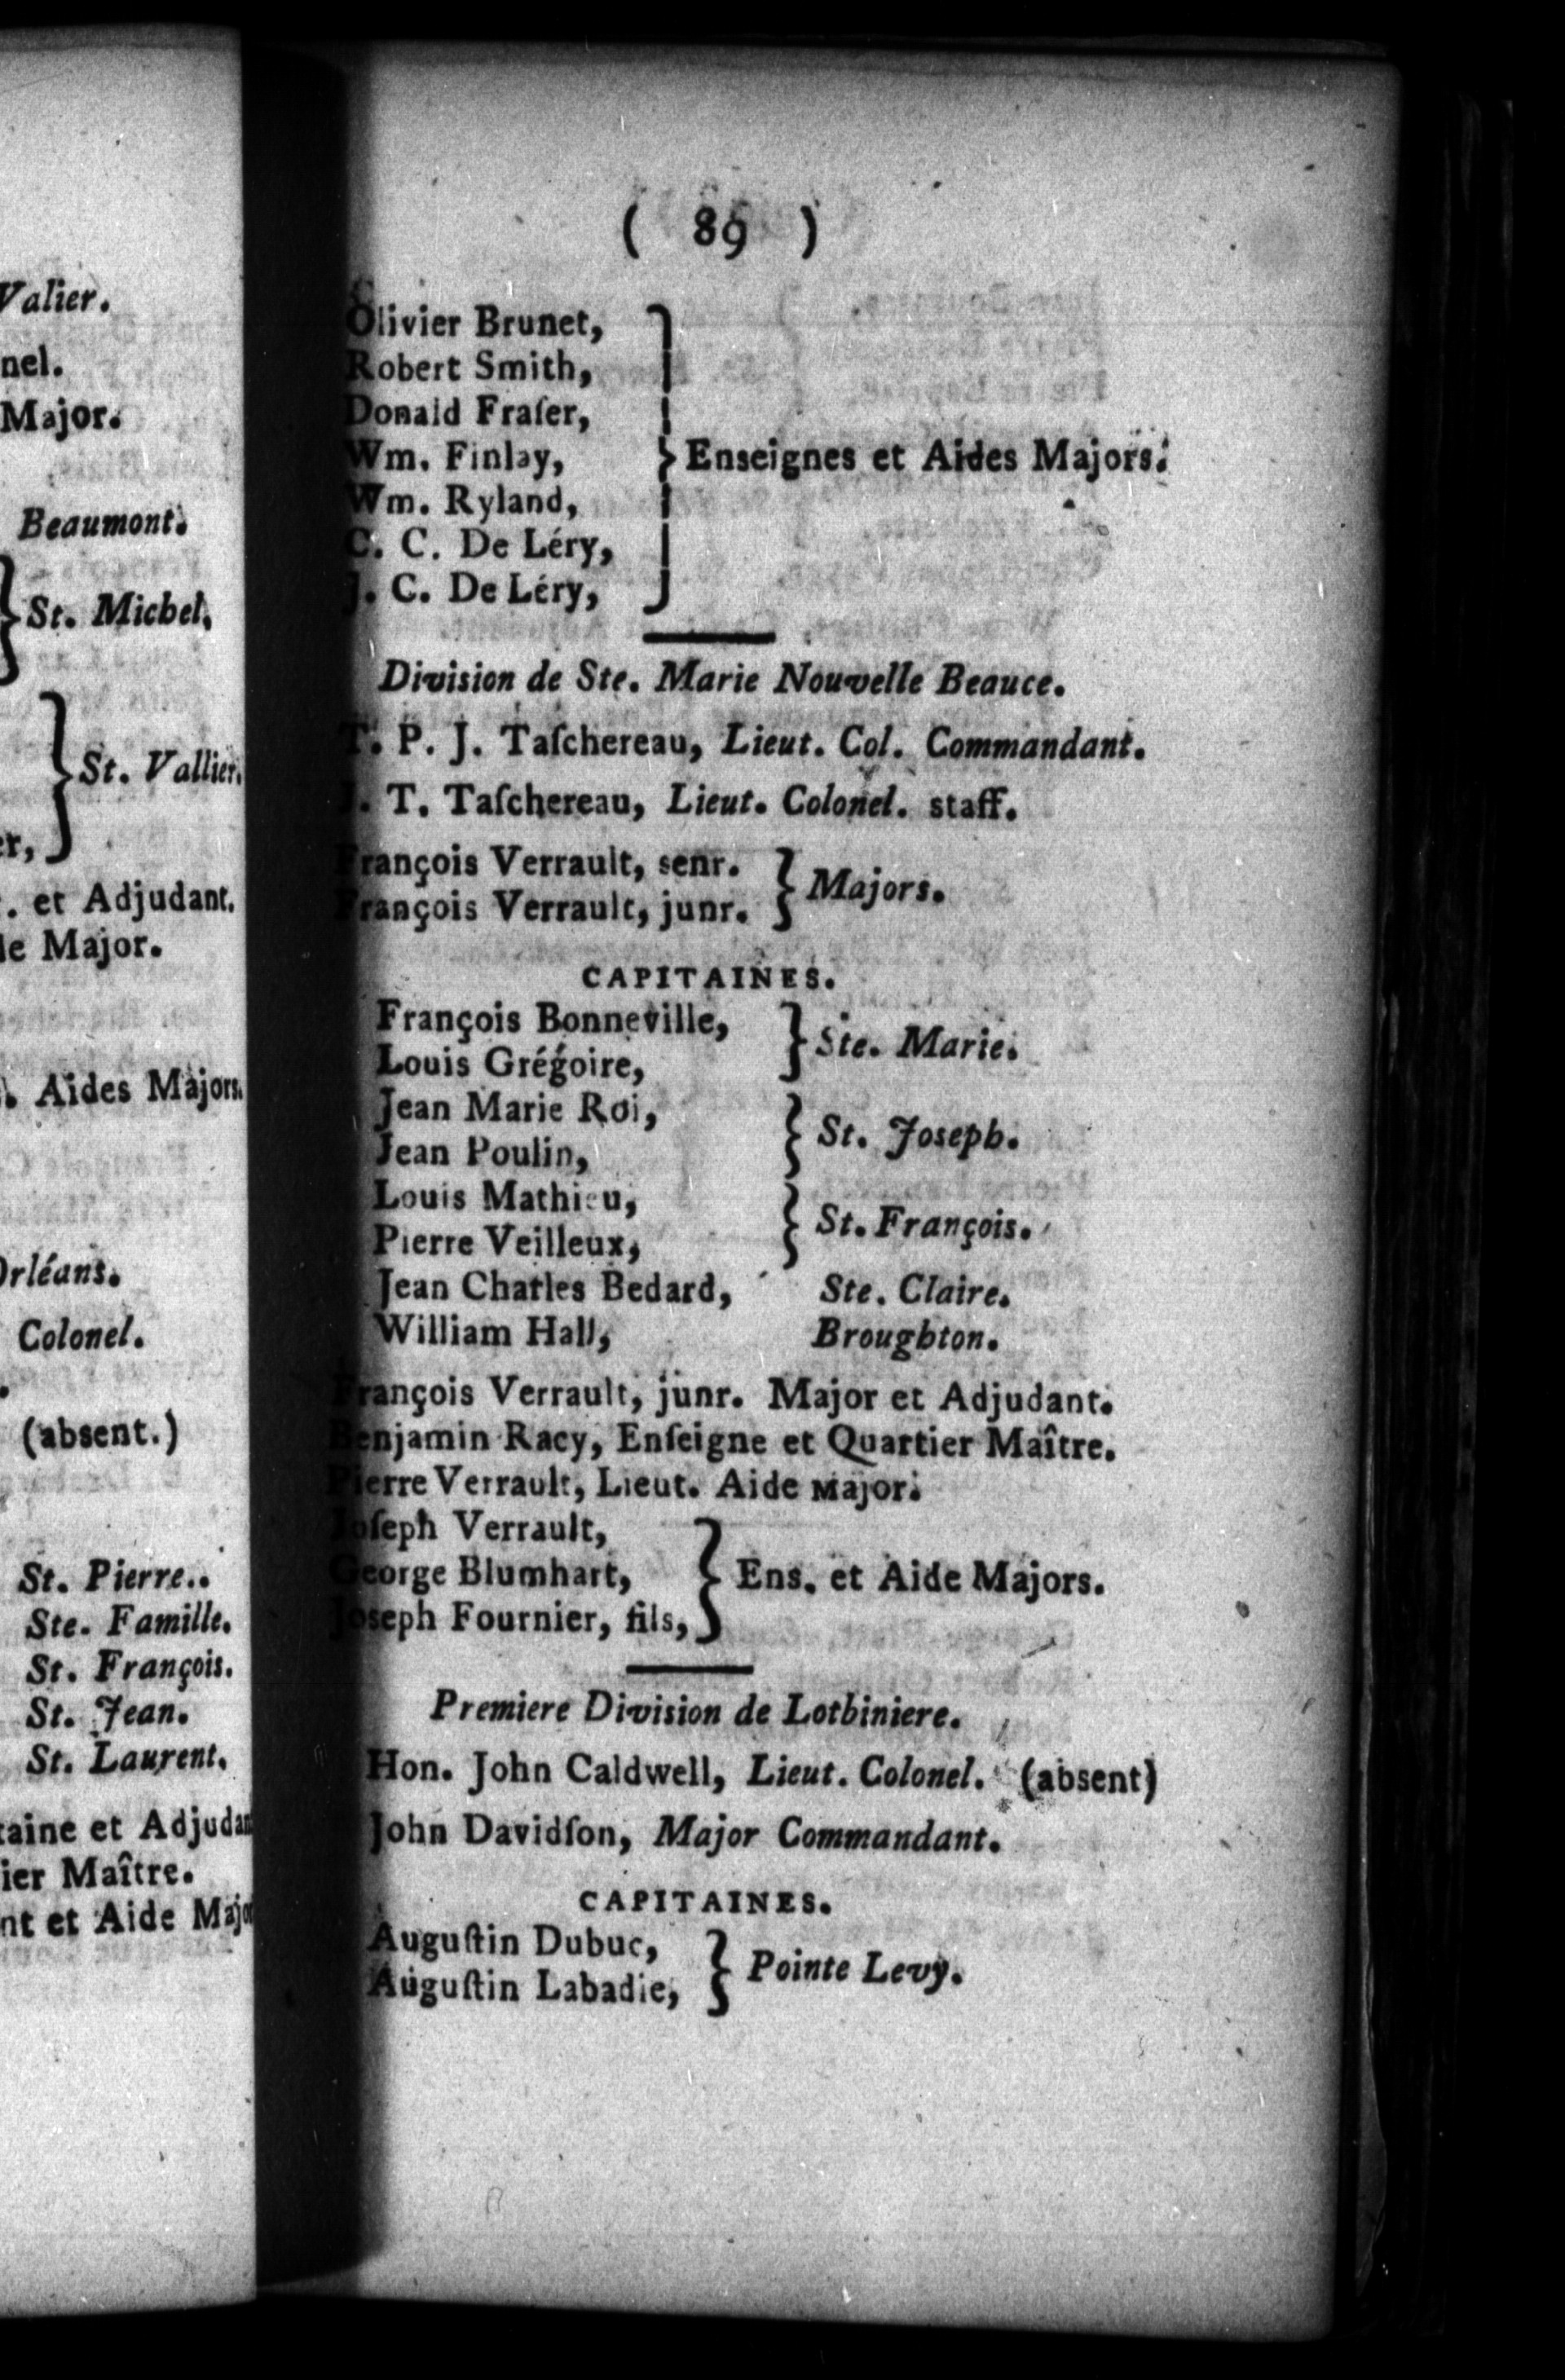 Valier.
nel.
Major.
Beaumont.
St. Michel,
St. Vallier.
er,
. et Adjudant.
le Major.
. Aides Majors.
Orléans.
Colonel.
(absent.)
St. Pierre..
Ste. Famille.
St. François.
St. Jean.
St. Laurent.
taine et Adjudan
ier Maître.
nt et Aide Majo
( 89 )
Olivier Brunet,
Robert Smith,
Donald Fraſer,
Wm. Finlay,
Enseignes et Aides Majors.
Wm. Ryland,
C. C. De Léry,
J. C. De Léry,
Division de Ste. Marie Nouvelle Beauce.
T. P. J. Taſchereau, Lieut. Col. Commandant.
J. T. Taſchereau, Lieut. Colonel. staff.
François Verrault, senr.
François Verrault, junr.
Majors.
CAPITAINES.
François Bonneville,
Louis Grégoire,
Ste. Marie.
Jean Marie Roi,
Jean Poulin,
St. Joseph.
Louis Mathieu,
Pierre Veilleux,
St. François.
Jean Charles Bedard, Ste. Claire.
William Hall, Broughton.
François Verrault, junr. Major et Adjudant.
Benjamin Racy, Enſeigne et Quartier Maître.
Pierre Verrault, Lieut. Aide Major.
Joſeph Verrault,
George Blumhart,
Joseph Fournier, fils,
Ens. et Aide Majors.
Premiere Division de Lotbiniere.
Hon. John Caldwell, Lieut. Colonel. (absent)
John Davidſon, Major Commandant.
CAPITAINES.
Auguſtin Dubuc,
Auguſtin Labadie,
Pointe Levy.